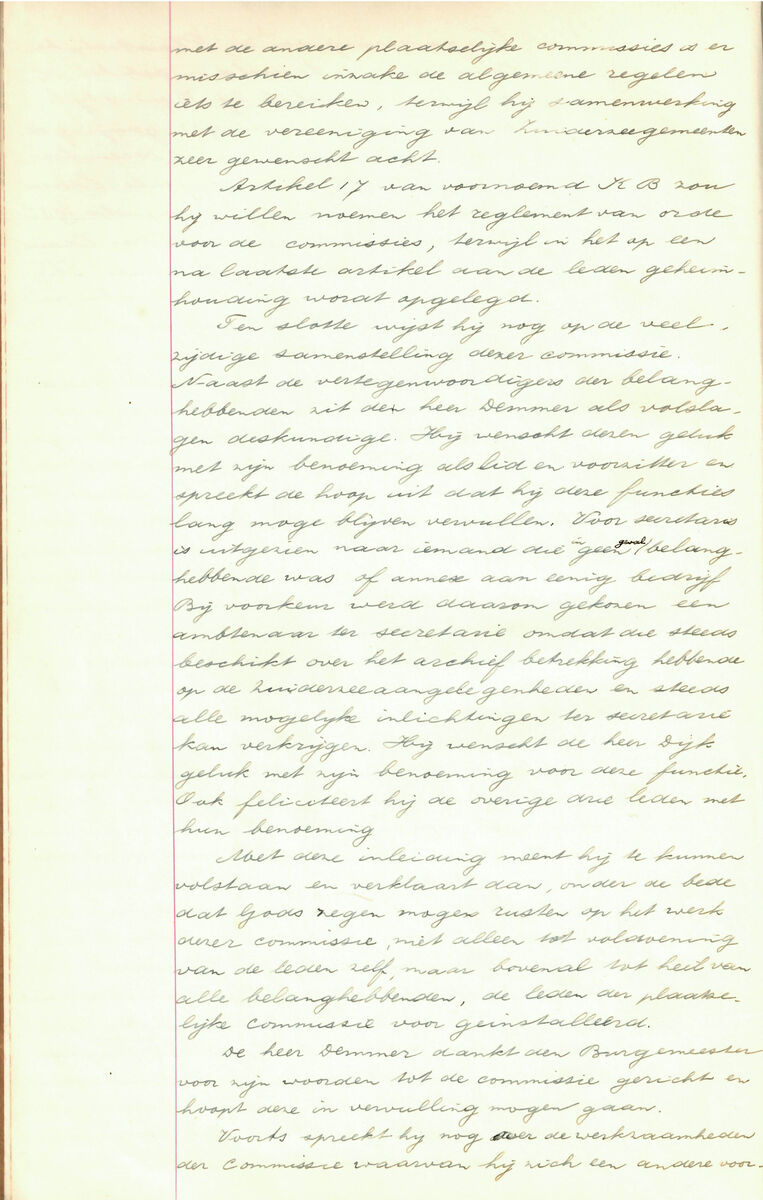 met de andere plaatselijke commissies is er
misschien inzake de algemeene regelen
iets te bereiken, terwijl hij samenwerking
met de vereeniging van Zuiderzeegemeenten
zeer gewenscht acht.
Artikel 17 van voornoemd K B zou
hij willen noemen het reglement van orde
voor de commissies, terwijl in het op een
na laatste artikel aan de leden geheim-
houding wordt opgelegd.
Ten slotte wijst hij nog op de veel-
zijdige samenstelling dezer commissie.
Naast de vertegenwoordigers der belang-
hebbenden zit de heer Demmer als volsla-
gen deskundige. Hij wenscht dezen geluk
met zijn benoeming als lid en voorzitter en
spreekt de hoop uit dat hij deze functies
lang moge blijven vervullen. Voor secretaris
is uitgezien naar iemand die in geen geval belang-
hebbende was of annex aan eenig bedrijf
Bij voorkeur werd daarom gekozen een
ambtenaar ter secretarie omdat die steeds
beschikt over het archief betrekking hebbende
op de Zuiderzeeaangelegenheden en steeds
alle mogelijke inlichtingen ter secretarie
kan verkrijgen. Hij wenscht de heer Dijk
geluk met zijn benoeming voor deze functie.
Ook feliciteert hij de overige drie leden met
hun benoeming
Met deze inleiding meent hij te kunnen
volstaan en verklaart dan, onder de bede
dat Gods zegen mogen rusten op het werk
dezer commissie, niet alleen tot voldoening
van de leden zelf, maar bovenal tot heil van
alle belanghebbenden, de leden der plaatse-
lijke commissie voor geinstalleerd.
De heer Demmer dankt den Burgemeester
voor zijn woorden tot de commissie gericht en
hoopt deze in vervulling mogen gaan.
Voorts spreekt hij nog over de werkzaamheden
der Commissie waarvan hij zich een andere voor-